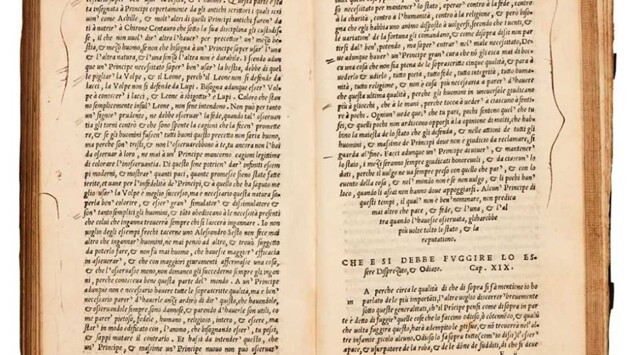 ta insegnata à Principi copertamente da gli antichi scrittori i quali
me Achille, & molt'altri di quelli Principi antichi furon da
ti à nutrir à Chirone Centauro che sotto la sua disciplina gli custodis
se, il che non vuol dir altro l'hauer per precettor' un mezo bestia,
& mezo huomo se non che bisogna à un Principe saper usar l'una
& l'altra natura, & l'una senza l'altra non è durabile. Essendo adun
que un Principe necessitato saper bene usar la bestia, debbe di quel
le pigliar la Volpe, & il Leone, perche il Leone non si defende da
lacci, la Volpe non si defende da Lupi. Bisogna adunque esser Vol
pe à conoscer i lacci, & Leone à sbigottir i Lupi. Coloro che stan
no semplicemente insul Leone, non sene intendono. Non può per tan
to un signor prudente, ne debbe osseruar la fede, quando tal osseruan
tia gli torni contro & che sono spente la cagioni che la feciono promet
tere, & se gli huomini fussen tutti buoni questo precetto non saria buono,
ma perche son tristi, & non l'osseruarebbono à te, tu ancora non l'hai
da osseruar à loro, ne mai à un Principe mancorno cagioni legittime
di colorare l'inosseruantia. Di questo sene potrien dar' infiniti essem
pi moderni, & mostrar quanti paci, quante promesse sieno state fatte
irrite, & uane per l'infedeltà de Principi, & à quello che ha saputo me
glio usar la Volpe è meglio successo, ma è necessario questa natura sa
perla ben' colorire, & esser gran' simulator & dissimulator &
son tanto semplici gli huomini, & tãto obediscono à le necessità presenti
che colui che inganna trouerrà sempre chi si lascerà ingannare. Io non
voglio degli essempi freschi tacerne uno Alessandro Sesto non fece mai
altro che ingannar huomini, ne mai pensò ad altro, & trouò suggetto
da poterlo fare, & non fu mai huomo, che hauesse maggior efficacia
in asseuerar, & che con maggiori giuramenti affermasse una cosa,
& che l'osseruasse meno, non dimanco gli succedettero sempre gli ingan
ni, perche conosceua bene questa parte del mondo. A un Principe adun
que non è necessario hauere tutte le soprascritte qualità, ma è ben
necessario parer d'hauerle anzi ardirò di dir' questo, che hauendole,
& osseruandole sempre sono dannose, & parendo d'hauerle son utili, co
me parer pietoso, fedele, humano, religioso, intero, & essere, ma
star' in modo edificato con l'animo, che bisognando esser', tu possi,
& sappi mutare il contrario. Et hassi da intendere questo, che
un' Principe, & massime un' Principe nuouo non può osseruar
so necessitato per mantener' lo stato, operar contro à la fede, contro à
la charità, contro à l'humanità, contro à la religione, & però biso
gna che egli habbia uno animo disposto à volgersi, secondo che i uenti, &
le variation' de la fortuna gli comandano, & come disopra dissi non par
tirsi dal ben', potendo, ma saper' entrar nel male, necessitato. De
ue adunque hauer' un' Principe gran' cura che nõ gli esca mai di boc
ca una cosa che non sia piena de le soprascritte cinque qualità, & paia à
vederlo & udirlo, tutto pietà, tutto fede, tutto integrità, tutto huma
nità, tutto religione, & non è cosa più necessaria à parer d'hauer, che
questa ultima qualità, perche gli huomini in universale giudicano
più à gliocchi, che à le mani, perche tocca à veder à ciascuno à sentir
à pochi. Ognun' uede quel, che tu pari, pochi sentono quel' che tu
sei, & quelli pochi non ardiscono opporsi à la opinion de molti, che hab
bino la maiestà de lo stato che gli defenda, & nelle attioni de tutti gli
huomini, & massime de Principi doue non è giudicio da reclamare, si
guarda al' fine. Facci adunque un' Principe di uiuer', & mantener
lo stato, i mezi seranno sempre giudicati honoreuoli, & da ciascun lo
dati, perche il vulgo ne ua sempre preso con quello che par', & con lo
euento della cosa, & nel mondo non è se non uulgo, & li pochi han
luoco, quando li assai non hanno doue appoggiarsi. Alcun' Principe di
questi tempi, il qual non è ben nominare, non predica
mai altro che pace, & fede, & l'una, & l'al
tra quando l'hauesse osseruata, gliharebbe
più volte tolto lo stato, & la
reputatione.
CHE E SI DEBBE FVGGIRE LO ES
sere Disprezato, & Odiato. Cap. XIX.
A perche circa le qualità di che di sopra si fà mentione io ho
parlato de le più importanti, l'altre uoglio discorrer' breuemente
sotto queste generalità, ch'il Principe pensi come disopra in par
te è detto di fuggir' quelle cose che lo faccino odioso, ò contennendo, & qualũ
che uolta fuggirà questo, harà adempito le parti sue, & nõ trouerrà nel'al
tre infamie pericolo alcuno. Odioso lo fà sopratutto (com' io dissi) l'esser'
rapace, & usurpatore de la robba, & de le donne de sudditi, di che si deue